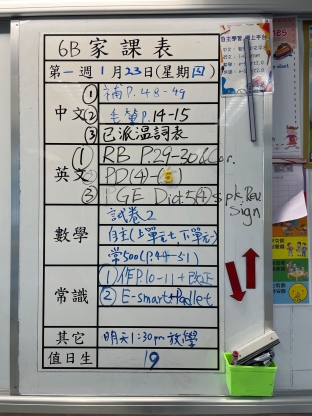 6B 家課表
第一週 1月23日(星期四)
中文
① 補 P.48-49
② P.14-15
③ 已派溫詞表
英文
① RB P.29-30 & Cor.
② PD(4)-(5)
③ PGE Dict5(4)s pk, Rev
Sign
數學
試卷2
自主(上單元七,下單元一)
常500(P.49-51)
常識
① 作P.10-11+改正
② E-smart+Padlet
其它
明天1:30pm 放學
值日生
19